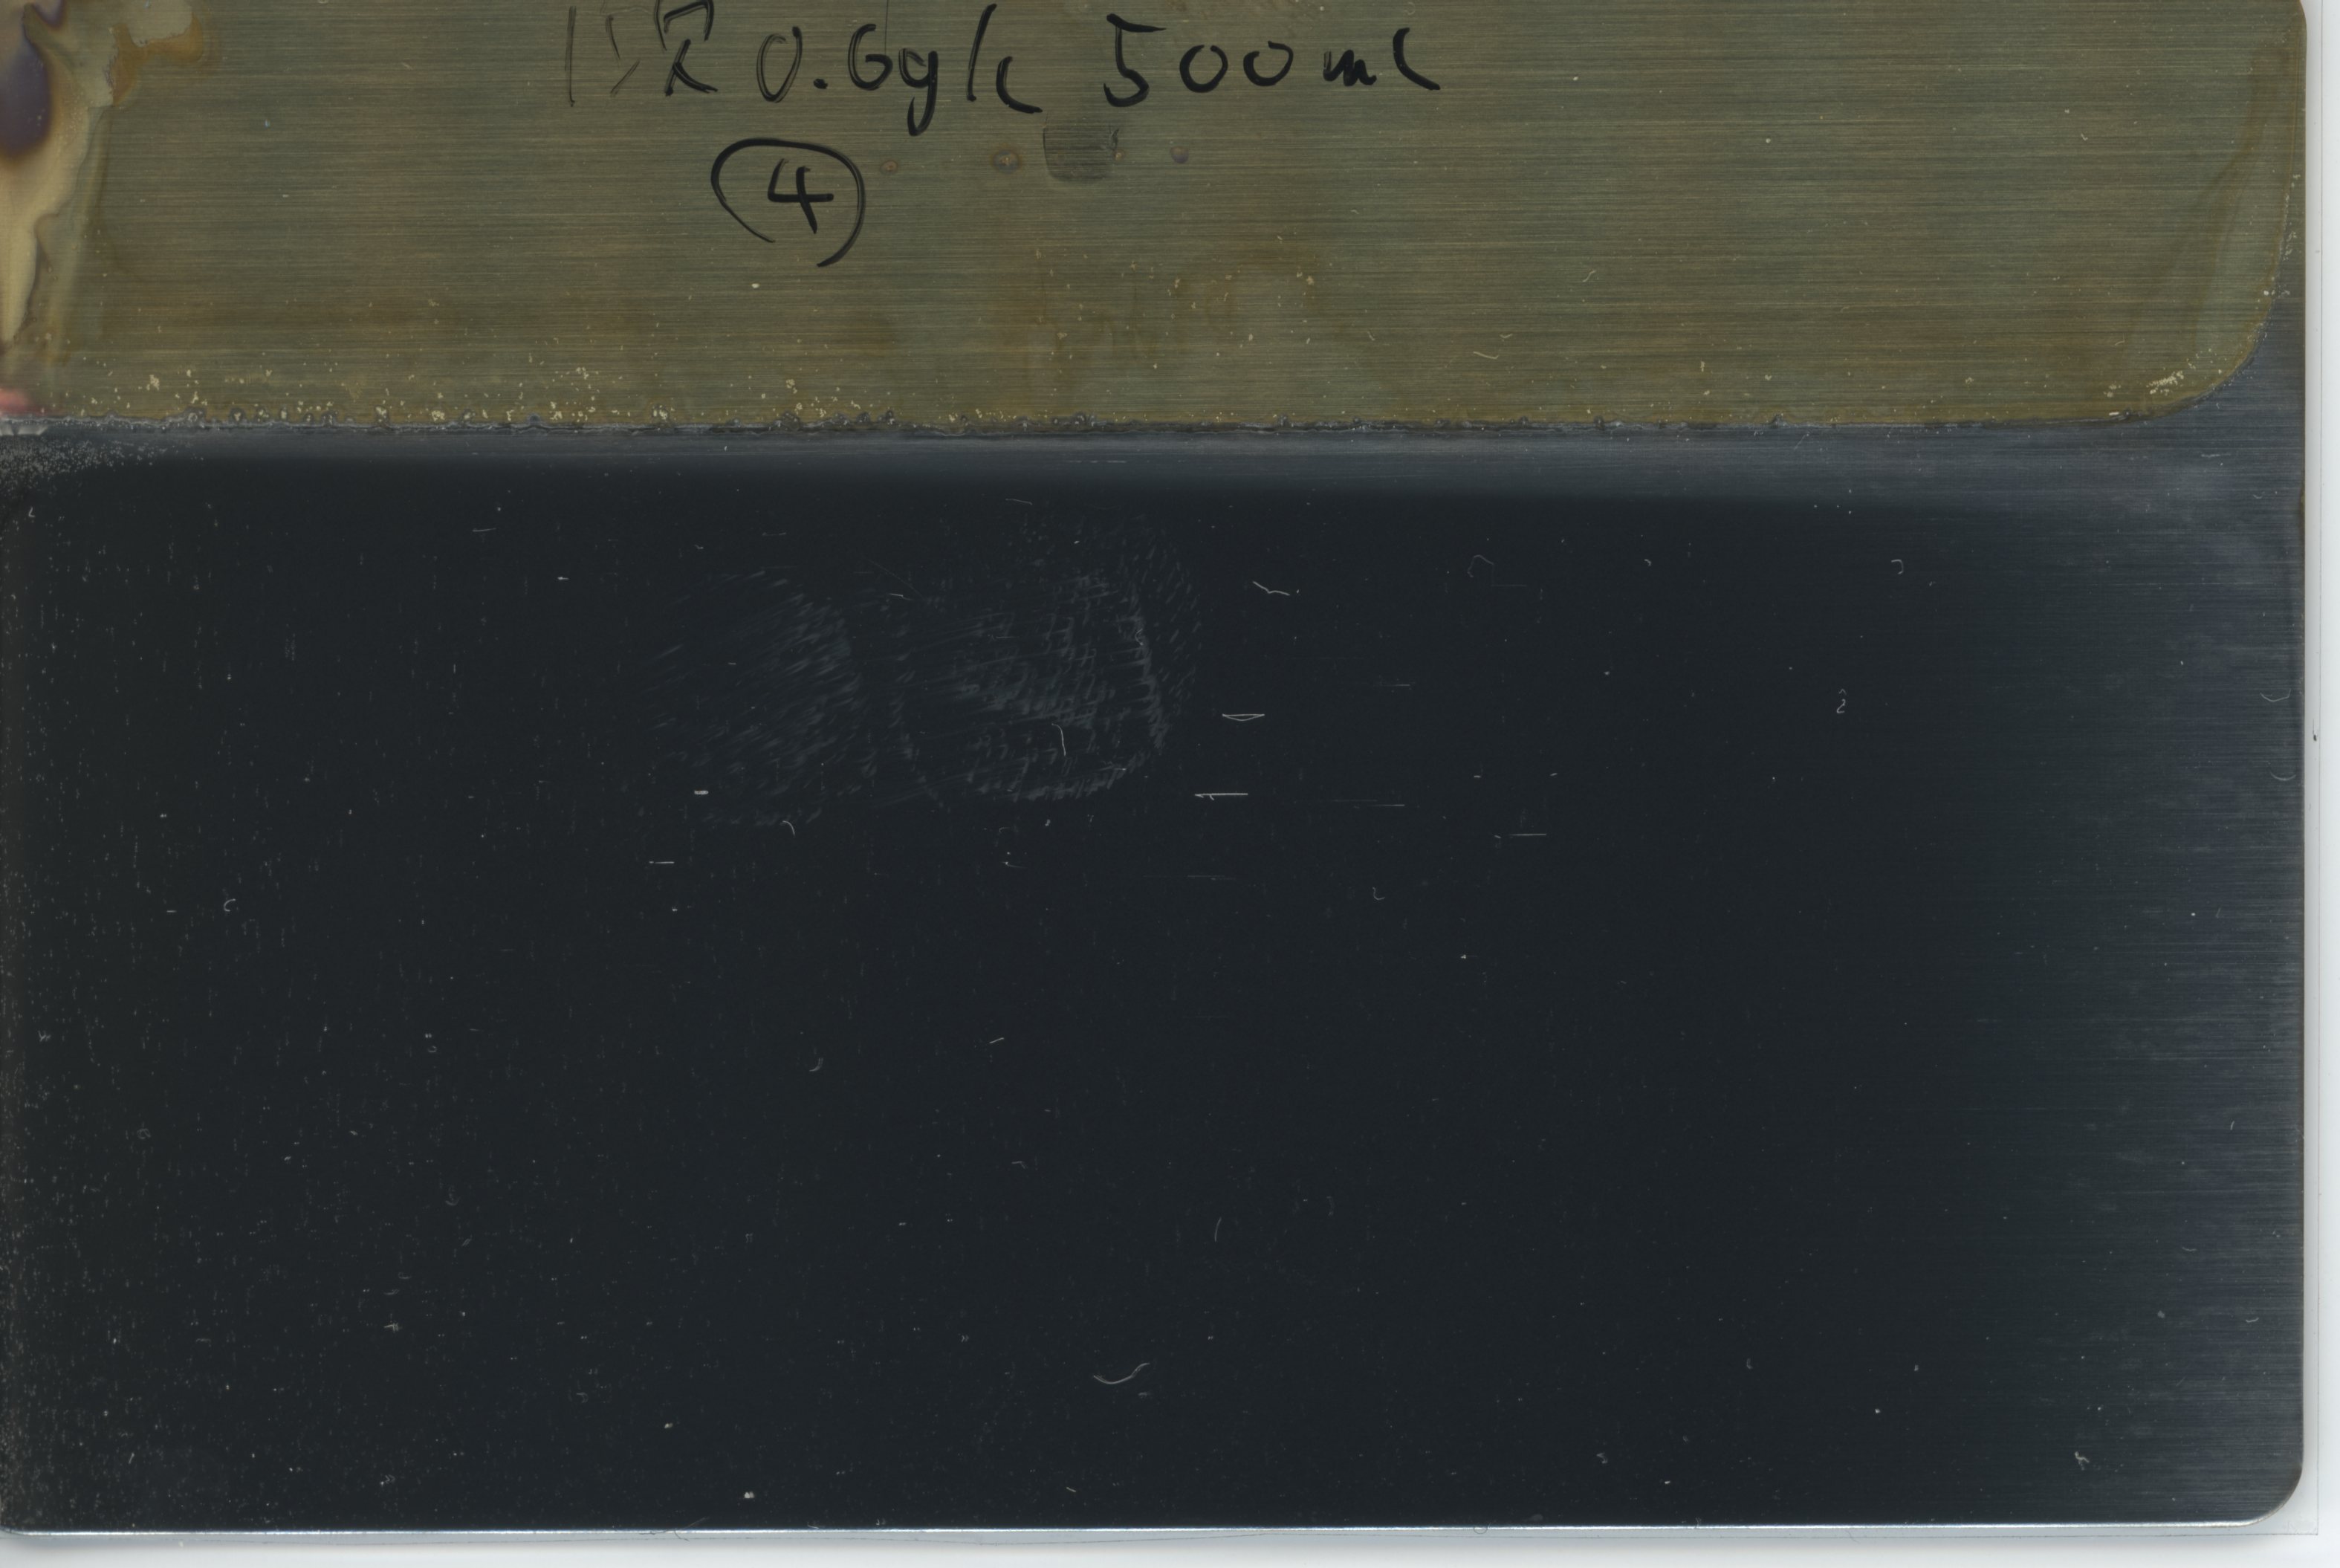 0.6g/L 500ml
④